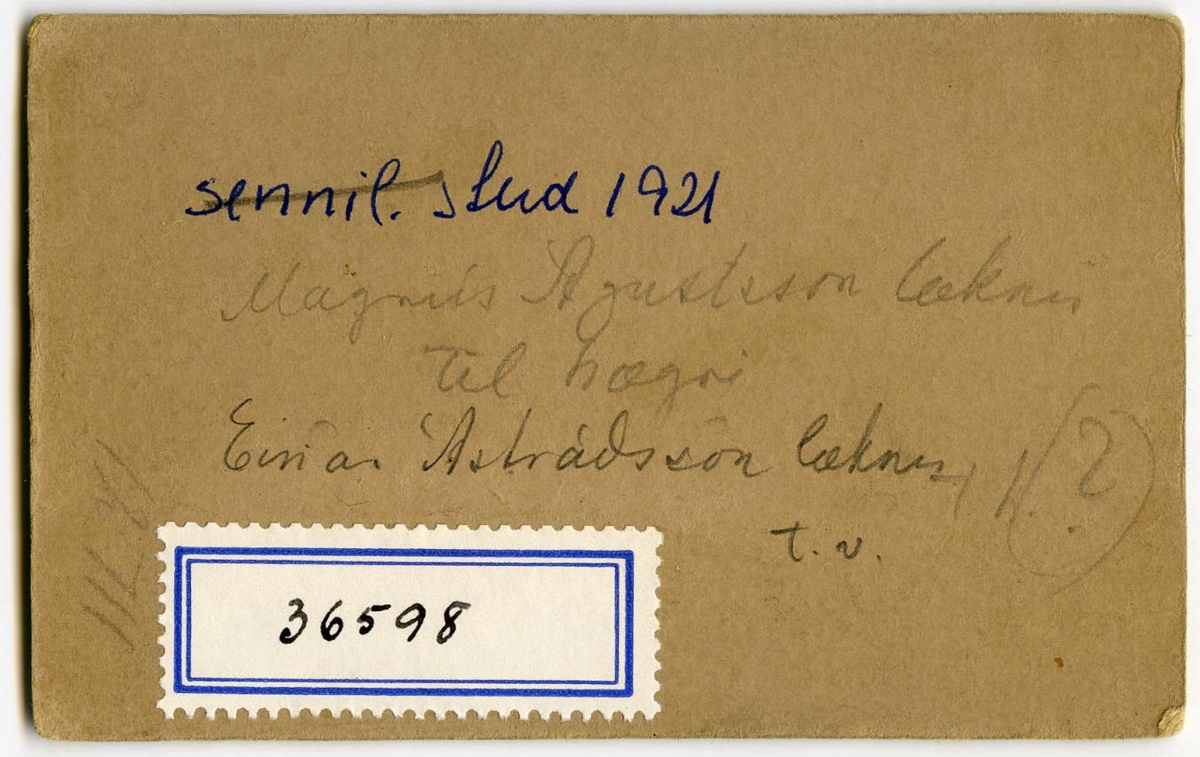 sennil. stud 1921
Magnús Ágústsson læknir
til hægri
Einar Ástráðsson læknir (?)
t.v.
36598